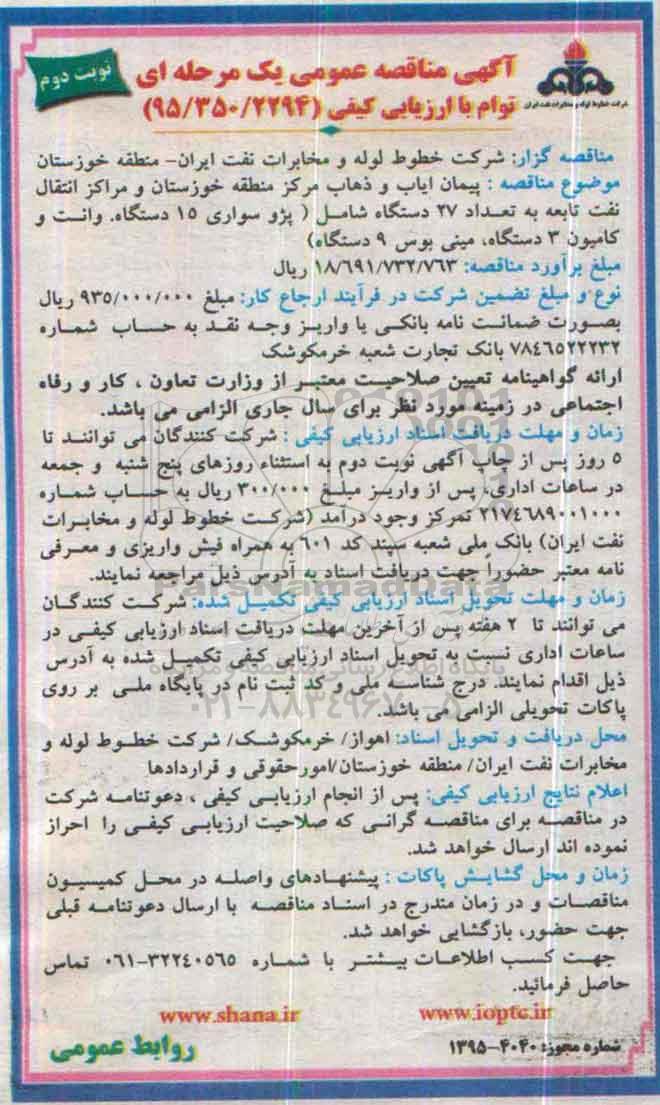 نوبت دوم
آگهی مناقصه عمومی یک مرحله ای
توام با ارزیابی کیفی (۹۵/۳۵۰/۲۲۹۴)
شرکت خطوط لوله و مخابرات نفت ایران
مناقصه گزار: شرکت خطوط لوله و مخابرات نفت ایران- منطقه خوزستان
موضوع مناقصه : پیمان ایاب و ذهاب مرکز منطقه خوزستان و مراکز انتقال
نفت تابعه به تعداد ۲۷ دستگاه شامل ( پژو سواری ۱۵ دستگاه، وانت و
کامیون ۳ دستگاه، مینی بوس ۹ دستگاه)
مبلغ برآورد مناقصه: ۱۸/۶۹۱/۷۳۲/۷۶۳ ریال
نوع و مبلغ تضمین شرکت در فرآیند ارجاع کار: مبلغ ۹۳۵/۰۰۰/۰۰۰ ریال
بصورت ضمانت نامه بانکی یا واریز وجه نقد به حساب شماره
۷۸۴۶۵۲۲۲۳۲ بانک تجارت شعبه خرمکوشک
ارائه گواهینامه تعیین صلاحیت معتبر از وزارت تعاون ، کار و رفاه
اجتماعی در زمینه مورد نظر برای سال جاری الزامی می باشد.
زمان و مهلت دریافت اسناد ارزیابی کیفی : شرکت کنندگان می توانند تا
۵ روز پس از چاپ آگهی نوبت دوم به استثناء روزهای پنج شنبه و جمعه
در ساعات اداری، پس از واریز مبلغ ۳۰۰/۰۰۰ ریال به حساب شماره
۲۱۷۴۶۸۹۰۰۱۰۰۰ تمرکز وجوه درآمد (شرکت خطوط لوله و مخابرات
نفت ایران) بانک ملی شعبه سپند کد ۶۰۱ به همراه فیش واریزی و معرفی
نامه معتبر حضوراً جهت دریافت اسناد به آدرس ذیل مراجعه نمایند.
زمان و مهلت تحویل اسناد ارزیابی کیفی تکمیل شده: شرکت کنندگان
می توانند تا ۲ هفته پس از آخرین مهلت دریافت اسناد ارزیابی کیفی در
ساعات اداری نسبت به تحویل اسناد ارزیابی کیفی تکمیل شده به آدرس
ذیل اقدام نمایند. درج شناسه ملی و کد ثبت نام در پایگاه ملی بر روی
پاکات تحویلی الزامی می باشد.
محل دریافت و تحویل اسناد: اهواز/ خرمکوشک/ شرکت خطوط لوله و
مخابرات نفت ایران/ منطقه خوزستان/امورحقوقی و قراردادها
اعلام نتایج ارزیابی کیفی: پس از انجام ارزیابی کیفی ، دعوتنامه شرکت
در مناقصه برای مناقصه گرانی که صلاحیت ارزیابی کیفی را احراز
نموده اند ارسال خواهد شد.
زمان و محل گشایش پاکات : پیشنهادهای واصله در محل کمیسیون
مناقصات و در زمان مندرج در اسناد مناقصه با ارسال دعوتنامه قبلی
جهت حضور، بازگشایی خواهد شد.
جهت کسب اطلاعات بیشتر با شماره ۳۲۲۴۰۵۶۵-۰۶۱ تماس
حاصل فرمائید.
www.shana.ir www.ioptc.ir
شماره مجوز: ۴۰۴۰-۱۳۹۵
روابط عمومی